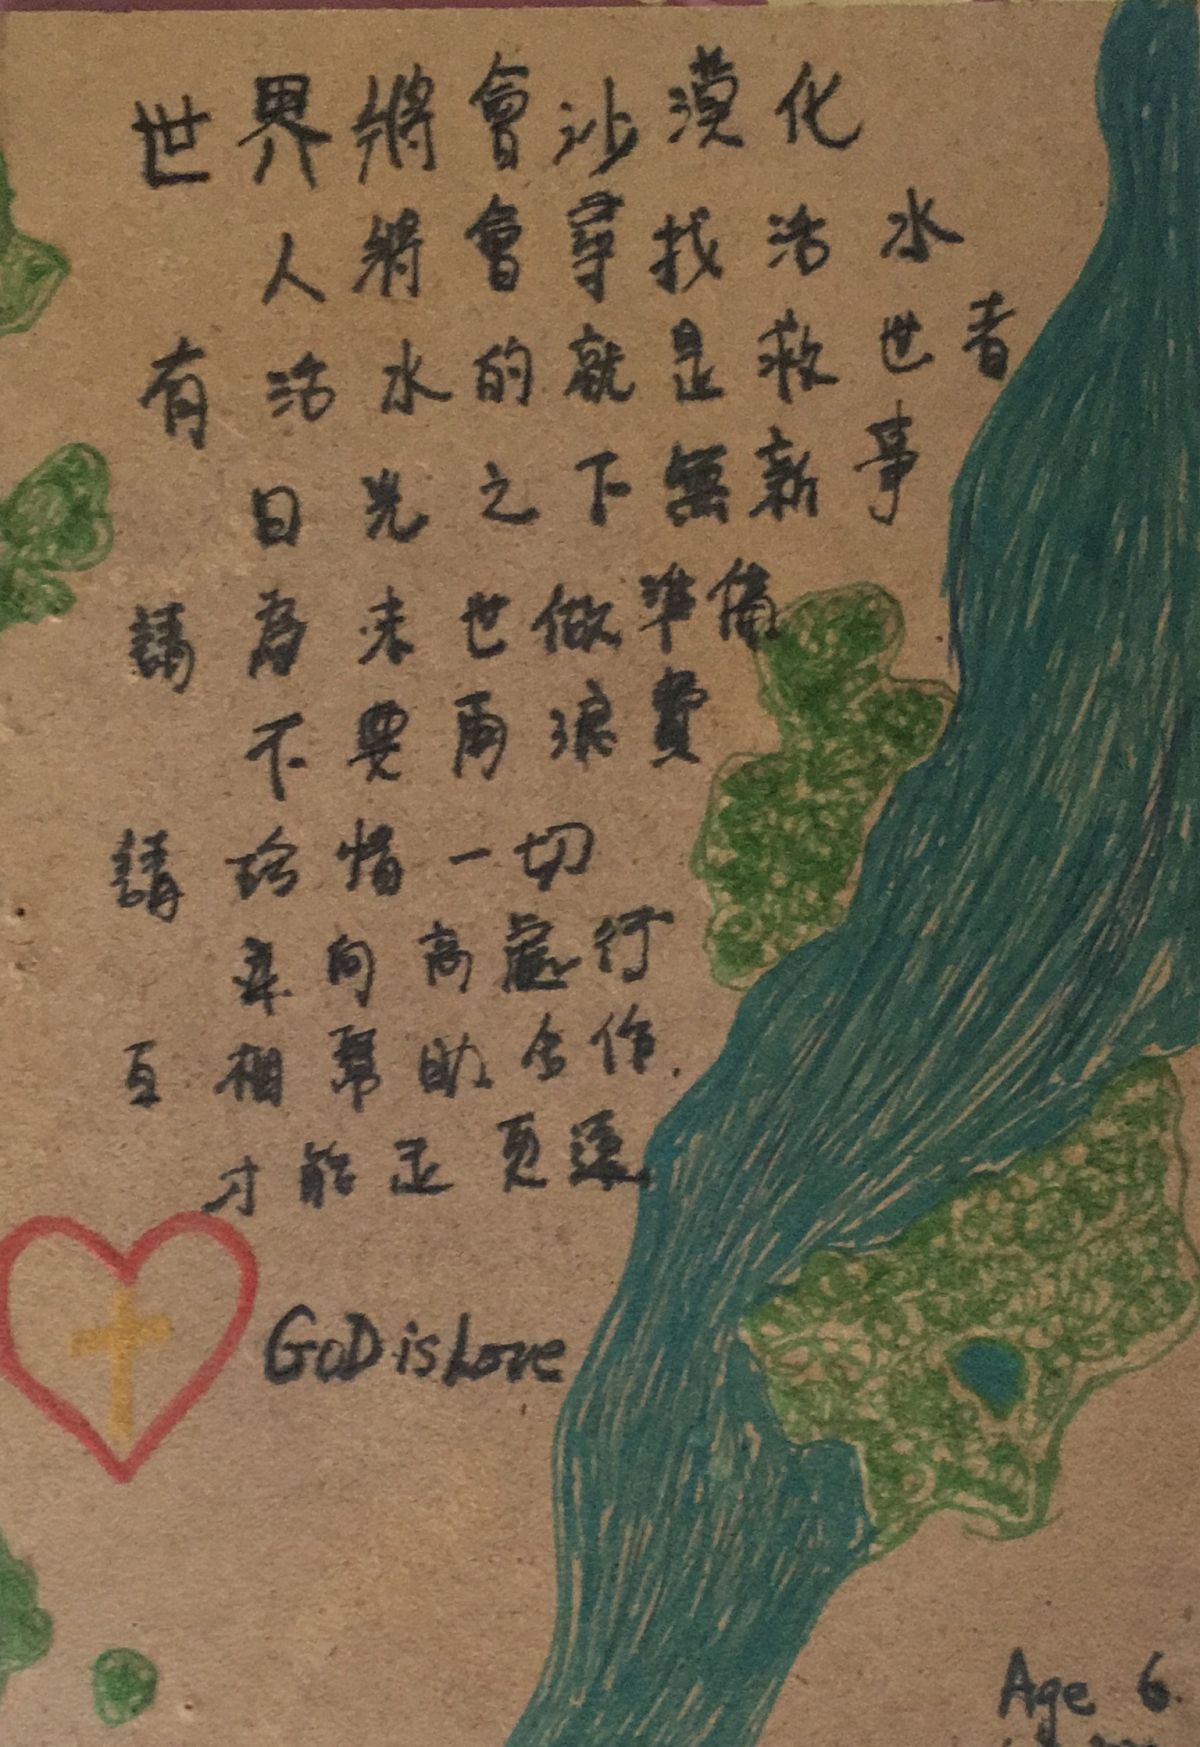 世界將會沙漠化
人將會尋找活水
有活水的就是救世者
日光之下無新事
請為末世做準備
不要再浪費
請珍惜一切
率向高處行
互相幫助合作.
才能走更遠
GOD is Love
Age 6